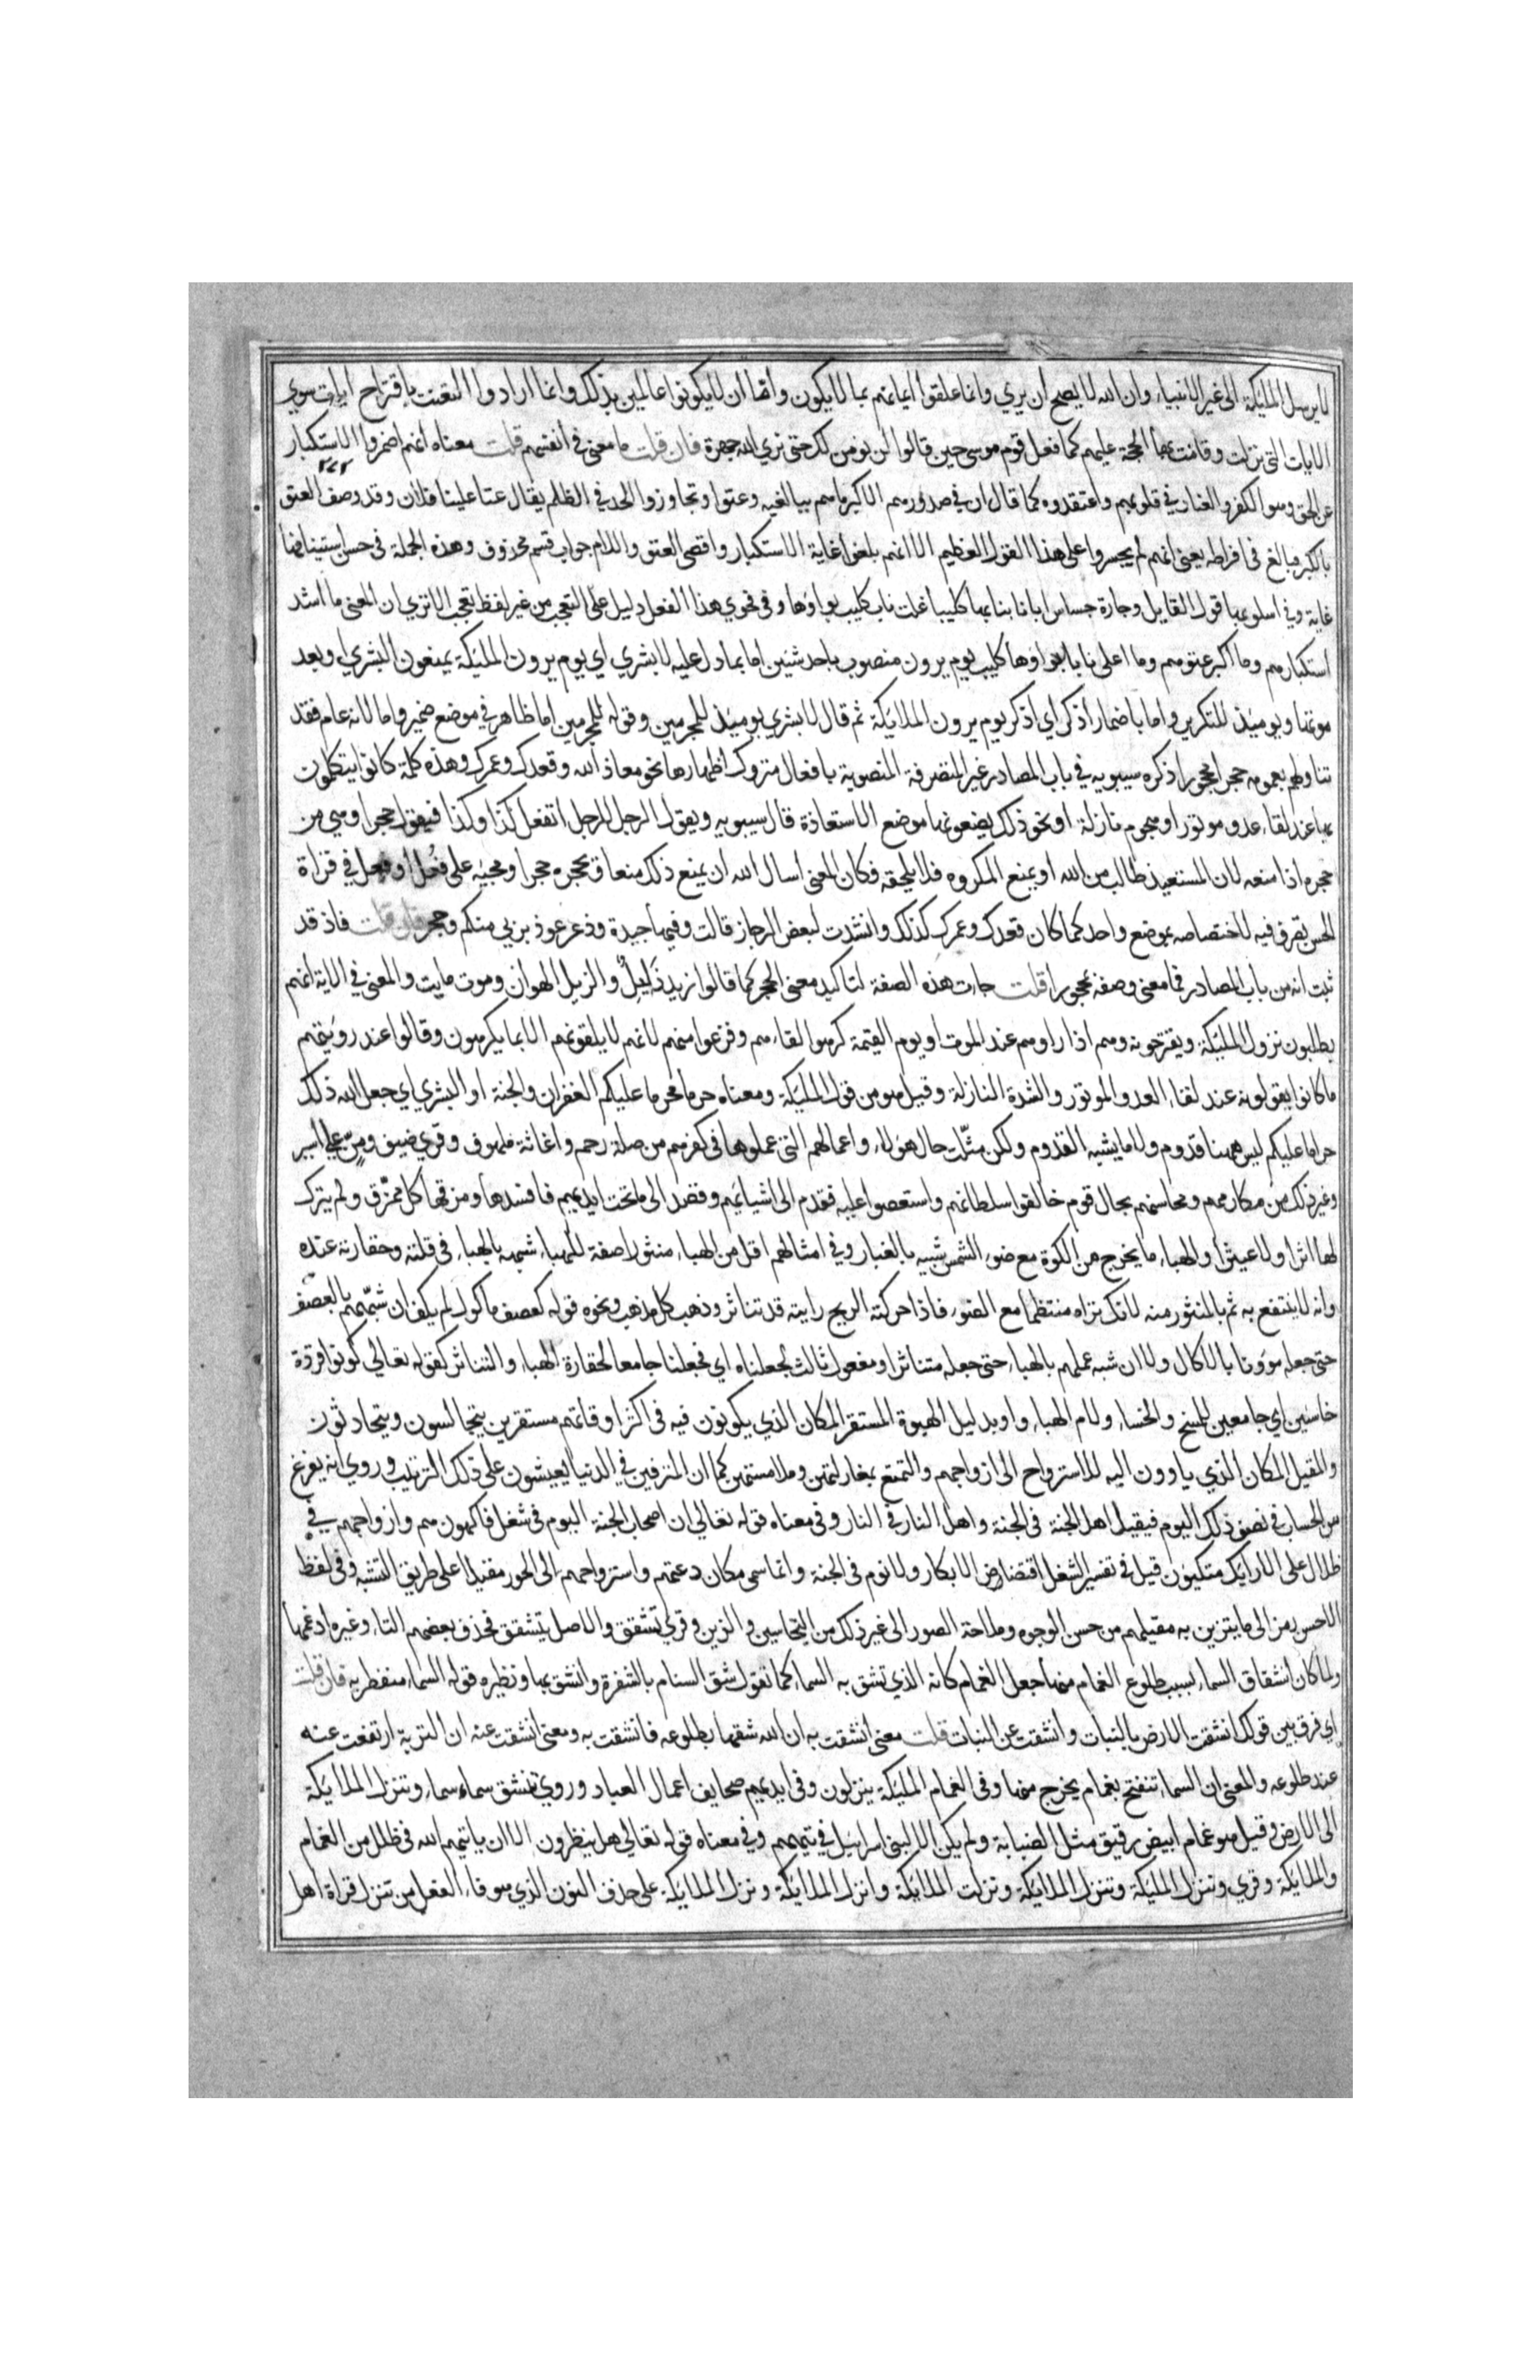 لا يرسل المليكة الى غير الانبياء وان الله لا يصح ان يري وانما علقوا ايمانهم بما لا يكون واما ان لا يكونوا عالمين بذلك وانما ارادوا التعنت باقتراح ايات سوي
الايات التي نزلت وقامت بها الحجة عليهم كما فعل قوم موسى حين قالوا لن نومن لك حتى نري الله جهرة فان قلت ما معنى في انفسهم قلت معناه انهم اضمروا الاستكبار
عن الحق وهو الكفر والعناد في قلوبهم واعتقدوه كما قال ان في صدورهم الا كبر ما هم ببالغيه وعتوا وتجاوزوا الحد في الظلم يقال عتا علينا فلان وقد وصف العتو
بالكبر فبالغ في افراطه يعني انهم لم يجسروا على هذا القول العظيم الا انهم بلغوا غاية الاستكبار واقصى العتو واللام جواب قسم محذوف وهذه الجملة في حسن استينافها
غاية وفي اسلوبها قول القايل وجارة جساس ابانا بنابها كليبا غلت ناب كليب بواؤها وفي فحوي هذا الفعل دليل على التعجب من غير لفظ تعجب الا تري ان المعنى ما اشد
استكبارهم وما اكبر عتوهم وما اغلى نابا بواؤها كليب يوم يرون منصوب باحد شئين اما بما دل عليه لا بشري اي يوم يرون المليكة يمنعون البشري او يعد
مونها ويوميذ للتكرير واما باضمار اذكر اي اذكر يوم يرون الملايكة ثم قال لا بشري يوميذ للمجرمين وقوله للمجرمين اما ظاهر في موضع ضمير واما لانه عام فقد
تناولهم بعمومه حجرا محجورا ذكره سيبويه في باب المصادر غير المتصرفة المنصوبة بافعال متروك اظهارها نحو معاذ الله وقعدك وعمرك وهذه كلمة كانوا يتكلمون
بها عند لقاء عدو موتور او هجوم نازلة او نحو ذلك يضعونها موضع الاستعاذة قال سيبويه ويقول الرجل للرجل اتفعل كذا وكذا فيقول حجرا وهي من
حجره اذا منعه لان المستعيذ طالب من الله ان يمنع المكروه فلا يلحقه فكان المعنى اسال الله ان يمنع ذلك منعا ويحجره حجرا ومجيه على فعل او فعل في قراة
الحسن تصرف فيه لاختصاصه بموضع واحد كما كان قعدك وعمرك كذلك وانشدت لبعض الرجاز قالت وفيها حيدة وذعر عوذ بربي منكم وحجر فان قلت فاذ قد
ثبت انه من باب المصادر فما معنى وصفه بمحجورا قلت جات هذه الصفة لتاكيد معنى الحجر كما قالوا ذيل ذايل والذيل الهوان وموت مايت والمعنى في الاية انهم
يطلبون نزول المليكة ويقترحونه وهم اذا راوهم عند الموت او يوم القيمة كرهوا لقاءهم وفزعوا منهم لانهم لا يلقونهم الا بما يكرهون وقالوا عند رويتهم
ما كانوا يقولونه عند لقاء العدو الموتور والشدة النازلة وقيل هو من قول المليكة ومعناه حراما محرما عليكم الغفران والجنة او البشري اي جعل الله ذلك
حراما عليكم ليس ههنا قدوم ولا ما يشبه القدوم ولكن مثلت حال هولاء واعمالهم التي عملوها في كفرهم من صلة رحم واغاثة ملهوف وقري ضيف ومن على اسير
وغير ذلك من مكارمهم ومحاسنهم بحال قوم خالفوا سلطانهم واستعصوا عليه فقدم الى اشيائهم وقصد الى ما تحت ايديهم فافسدها ومزقها كل ممزق ولم يترك
لها اثرا ولا عيثرا والهباء ما يخرج من الكوة مع ضوء الشمس شبيه بالغبار وفي امثالهم اقل من الهباء منثورا صفة للهباء شبهه بالهباء في قلته وحقارته عنده
وانه لا ينتفع به ثم بالمنثور منه لانك تراه منتظما مع الضوء فاذا حركته الريح رايته قد تناثر وذهب كل مذهب ونحوه قوله كعصف ماكول لم يكف ان شبههم بالعصف
حتى جعله مووفا بالاكال ولا ان شبه عملهم بالهباء حتى جعله متناثرا او مفعول ثالث لجعلناه اي فجعلنا جامعا لحقارة الهباء والتناثر كقوله تعالى كونوا قردة
خاسئين اي جامعين للمسخ والخساء ولام الهباء واو بدليل الهبوة المستقر المكان الذي يكونون فيه في اكثر اوقاتهم مستقرين يتجالسون ويتحادثون
والمقيل المكان الذي ياوون اليه للاسترواح الى ازواجهم والتمتع بمغازلتهن وملامستهن كما ان المترفين في الدنيا يعيشون على ذلك الترتيب وروي انه يفرغ
من الحساب في نصف ذلك اليوم فيقيل اهل الجنة في الجنة واهل النار في النار وفي معناه قوله تعالى ان اصحاب الجنة اليوم في شغل فاكهون هم وازواجهم في
ظلال على الارايك متكيون قيل في تفسير الشغل اقتضاض الابكار ولا نوم في الجنة وانما سمى مكان دعتهم واسترواحهم الى الحور مقيلا على طريق التشبيه وفي لفظ
الاحسن رمز الى ما يتزين به مقيلهم من حسن الوجوه وملاحة الصور الى غير ذلك من التحاسين والزين وقري تشقق والاصل تتشقق فحذف بعضهم التاء وغيره ادغمها
ولما كان انشقاق السماء بسبب طلوع الغمام منها جعل الغمام كانه الذي تشق به السماء كما تقول شق السنام بالشفرة وانشق بها ونظيره قوله السماء منفطر به فان قلت
اي فرق بين قولك انشقت الارض بالنبات وانشقت عن النبات قلت معنى انشقت به ان الله شقها بطلوعه فانشقت به ومعنى انشقت عنه ان التربة ارتفعت عنه
عند طلوعه والمعنى ان السماء تنفتح بغمام يخرج منها وفي الغمام المليكة ينزلون وفي ايديهم صحايف اعمال العباد وروي تنشق سماء سماء وتنزل الملايكة
الى الارض وقيل هو غمام ابيض رقيق مثل الضبابة ولم يكن الا لبني اسرايل في تيههم وفي معناه قوله تعالى هل ينظرون الا ان ياتيهم الله في ظلل من الغمام
والملايكة وقري وتنزل المليكة وتنزل الملايكة ونزلت الملايكة وانزل الملايكة ونزل الملايكة على حذف النون الذي هو فاء الفعل من تنزل قراة اهل